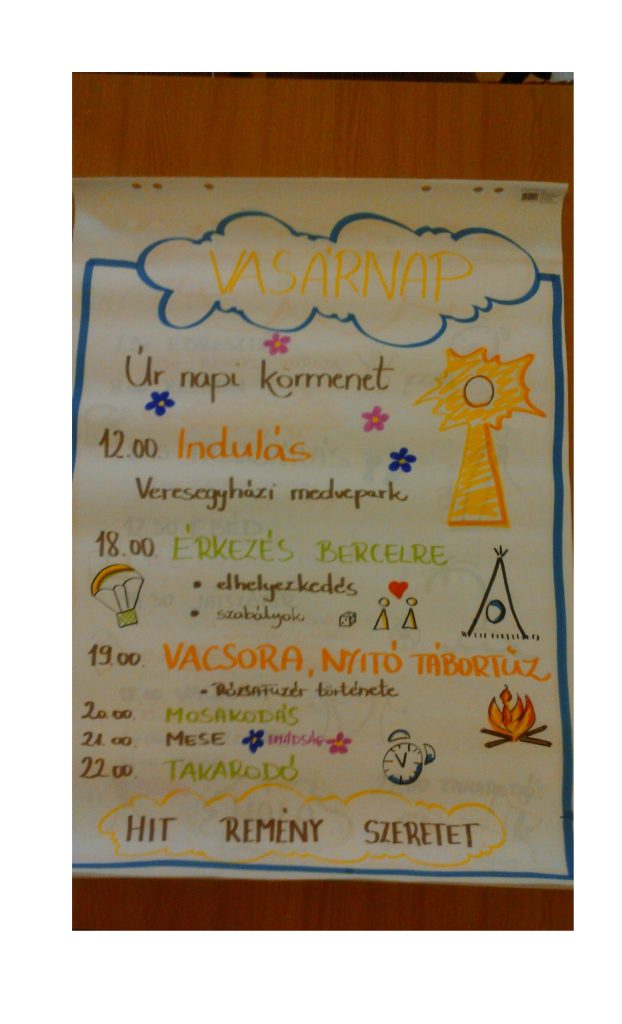 VASÁRNAP
Úr napi körmenet
12.00. Indulás
Veresegyházi medvepark
18.00. ÉRKEZÉS BERCELRE
• elhelyezkedés
• szabályok
19.00. VACSORA, NYITÓ TÁBORTŰZ
• RÓZSAFÜZÉR története
20.00. MOSAKODÁS
21.00. MESE IMÁDSÁG
22.00. TAKARODÓ
HIT REMÉNY SZERETET